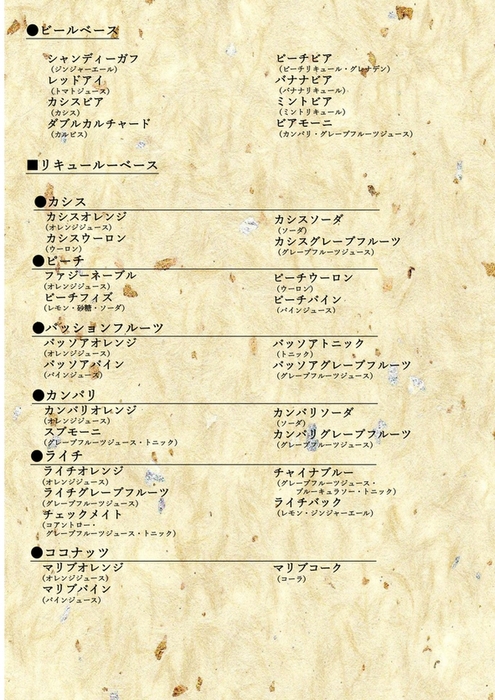 ●ビールベース
シャンディーガフ
(ジンジャーエール)
レッドアイ
(トマトジュース)
カシスビア
(カシス)
ダブルカルチャード
(カルピス)
ピーチビア
(ピーチリキュール・グレナデン)
バナナビア
(バナナリキュール)
ミントビア
(ミントリキュール)
ビアモーニ
(カンパリ・グレープフルーツジュース)
■リキュールーベース
●カシス
カシスオレンジ
(オレンジジュース)
カシスウーロン
(ウーロン)
カシスソーダ
(ソーダ)
カシスグレープフルーツ
(グレープフルーツジュース)
●ピーチ
ファジーネーブル
(オレンジジュース)
ピーチフィズ
(レモン・砂糖・ソーダ)
ピーチウーロン
(ウーロン)
ピーチパイン
(パインジュース)
●パッションフルーツ
パッソアオレンジ
(オレンジジュース)
パッソアパイン
(パインジュース)
パッソアトニック
(トニック)
パッソアグレープフルーツ
(グレープフルーツジュース)
●カンパリ
カンパリオレンジ
(オレンジジュース)
スプモーニ
(グレープフルーツジュース・トニック)
カンパリソーダ
(ソーダ)
カンパリグレープフルーツ
(グレープフルーツジュース)
●ライチ
ライチオレンジ
(オレンジジュース)
ライチグレープフルーツ
(グレープフルーツジュース)
チェックメイト
(コアントロー・
グレープフルーツジュース・トニック)
チャイナブルー
(グレープフルーツジュース・
ブルーキュラソー・トニック)
ライチバック
(レモン・ジンジャーエール)
●ココナッツ
マリブオレンジ
(オレンジジュース)
マリブパイン
(パインジュース)
マリブコーク
(コーラ)